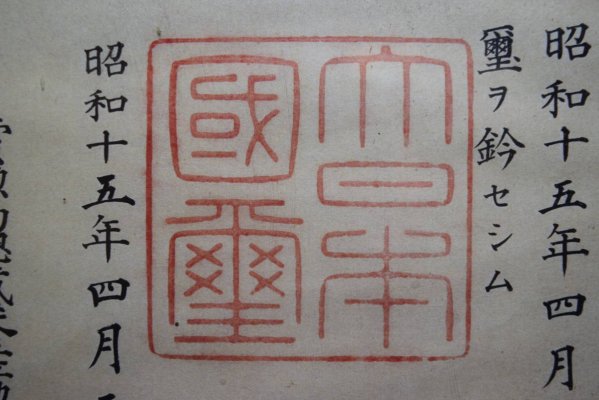 昭和十五年四月
璽ヲ鈐セシム
大日本
國璽
昭和十五年四月